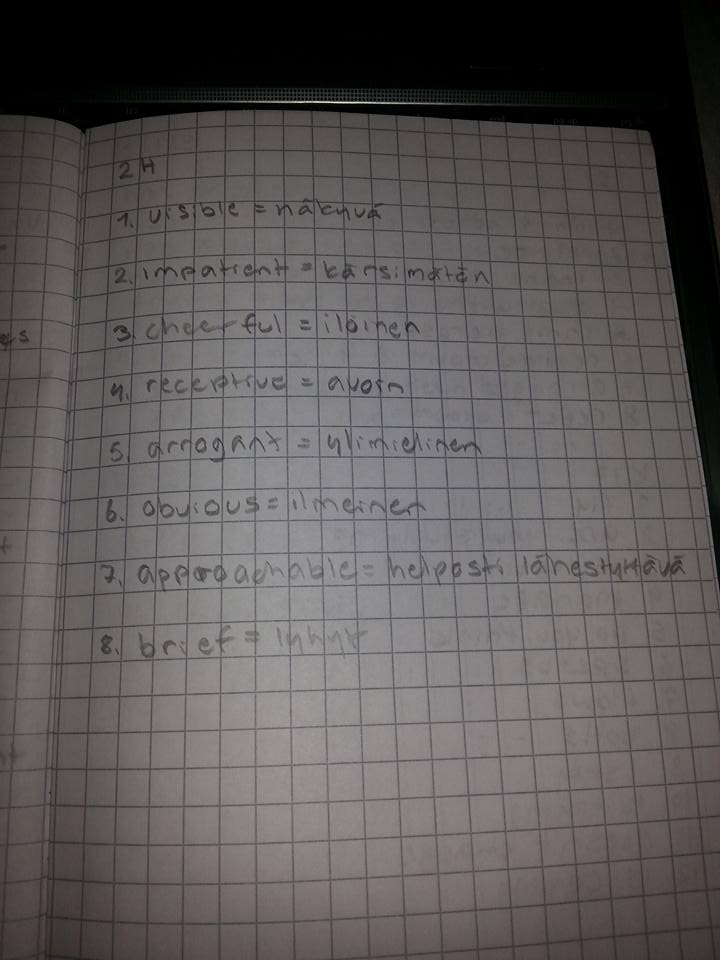 2H
1. visible = näkyvä
2. impatient = kärsimätön
3. cheerful = iloinen
4. receptive = avoin
5. arrogant = ylimielinen
6. obvious = ilmeinen
7. approachable = helposti lähestyttävä
8. brief = lyhyt